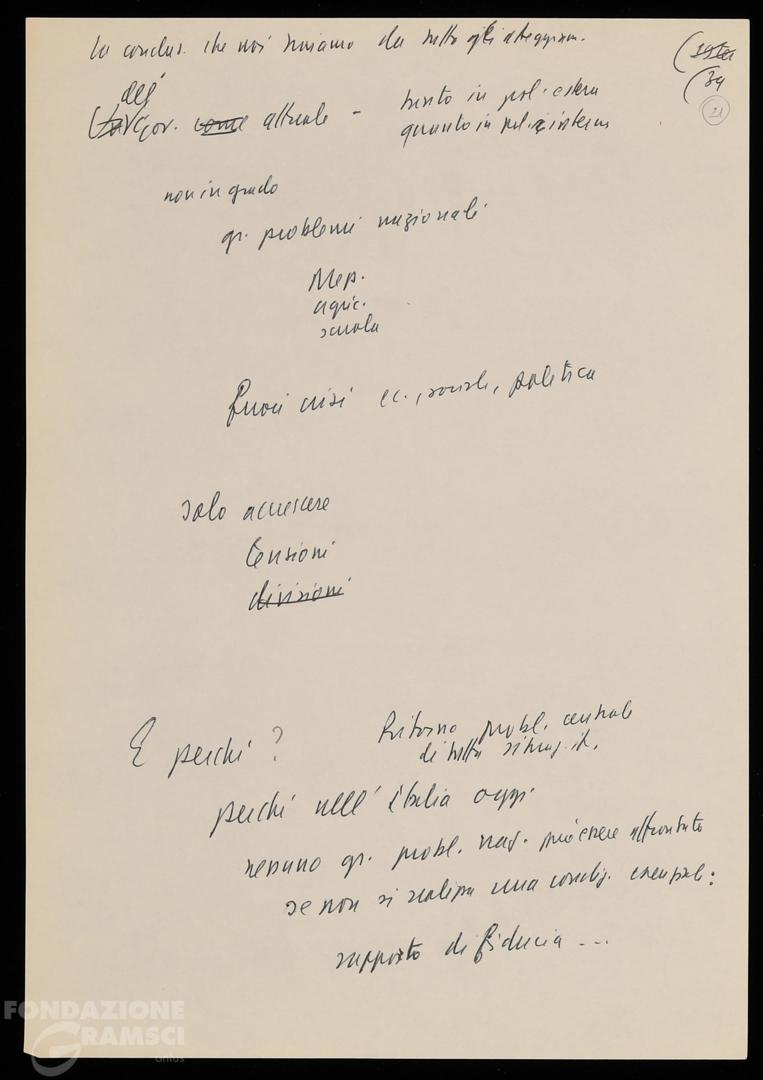 La conclus. che noi traiamo da tutto gli atteggiam.
dell'
Gov. come attuale - tanto in pol. estera
quanto in pol. interna
(39
21
non in grado
gr. problemi nazionali
Mep.
agric.
scuola
fuori crisi ec., sociale, politica
solo accrescere
tensioni
divisioni
E perché? Ritorno probl. centrale
di tutta situaz. it.
perché nell'Italia oggi
nessuno gr. probl. naz. può essere affrontato
se non si realizza una condiz. essenziale:
rapporto di fiducia ...
FONDAZIONE
GRAMSCI
onlus